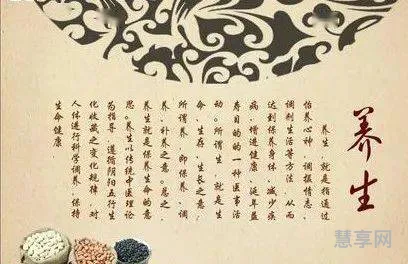 养生
养生，就是指通过
怡养心神，调摄情志，
调剂生活等方法，从而
达到保养身体、减少疾
病、增进健康、延年益
寿目的的一种医事活
动。所谓生，就是生
命、生存、生长之意；
所谓养，即保养、调
养、补养之意。总之，
养生就是保养生命的意
思。养生以传统中医理论
为指导，遵循阴阳五行生
化收藏之变化规律，对
人体进行科学调养，保持
生命健康。
慧享网